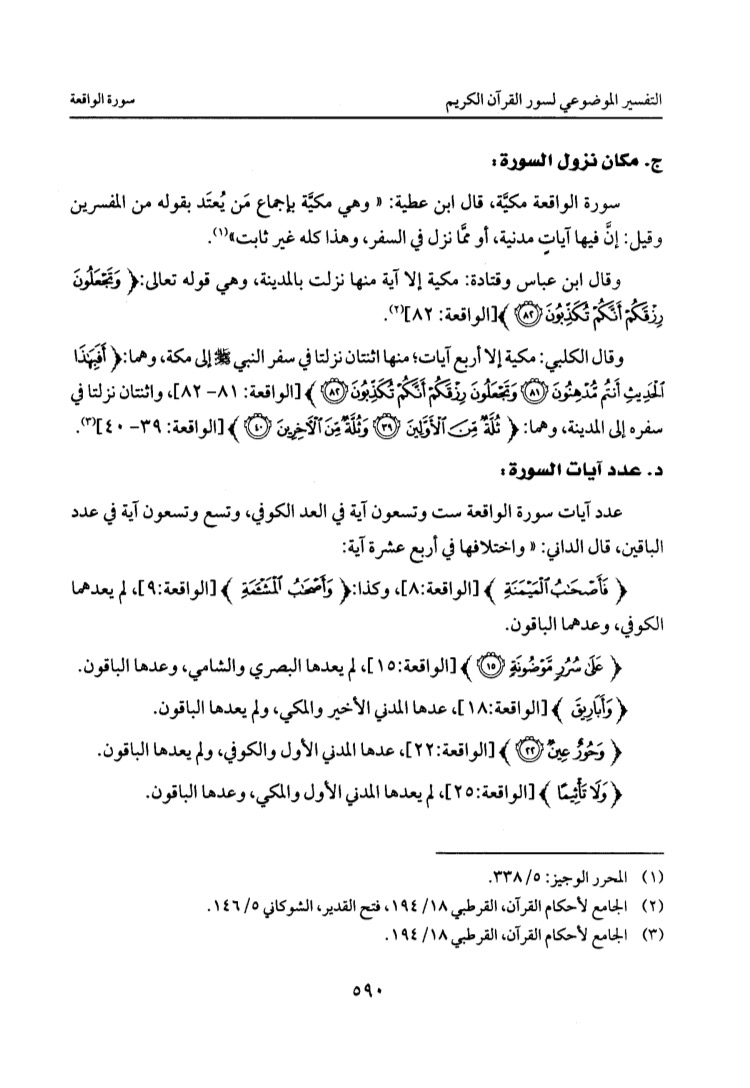 التفسير الموضوعي لسور القرآن الكريم
سورة الواقعة
ج. مكان نزول السورة:
سورة الواقعة مكيَّة، قال ابن عطية: « وهي مكيَّة بإجماع مَن يُعتَد بقوله من المفسرين
وقيل: إنَّ فيها آياتٍ مدنية، أو ممَّا نزل في السفر، وهذا كله غير ثابت»(١).
وقال ابن عباس وقتادة: مكية إلا آية منها نزلت بالمدينة، وهي قوله تعالى:﴿ وَتَجْعَلُونَ
رِزْقَكُمْ أَنَّكُمْ تُكَذِّبُونَ ﴿٨٢﴾ ﴾[الواقعة: ٨٢](٢).
وقال الكلبي: مكية إلا أربع آيات؛ منها اثنتان نزلتا في سفر النبي ﷺ إلى مكة، وهما:﴿ أَفَبِهَٰذَا
الْحَدِيثِ أَنتُم مُّدْهِنُونَ ﴿٨١﴾ وَتَجْعَلُونَ رِزْقَكُمْ أَنَّكُمْ تُكَذِّبُونَ ﴿٨٢﴾ ﴾[الواقعة: ٨١- ٨٢]، واثنتان نزلتا في
سفره إلى المدينة، وهما: ﴿ ثُلَّةٌ مِّنَ الْأَوَّلِينَ ﴿٣٩﴾ وَثُلَّةٌ مِّنَ الْآخِرِينَ ﴿٤٠﴾ ﴾[الواقعة: ٣٩- ٤٠](٣).
د. عدد آيات السورة:
عدد آيات سورة الواقعة ست وتسعون آية في العد الكوفي، وتسع وتسعون آية في عدد
الباقين، قال الداني: « واختلافها في أربع عشرة آية:
﴿ فَأَصْحَابُ الْمَيْمَنَةِ ﴾ [الواقعة:٨]، وكذا:﴿ وَأَصْحَابُ الْمَشْئَمَةِ ﴾ [الواقعة:٩]، لم يعدهما
الكوفي، وعدهما الباقون.
﴿ عَلَىٰ سُرُرٍ مَّوْضُونَةٍ ﴿١٥﴾ ﴾ [الواقعة:١٥]، لم يعدها البصري والشامي، وعدها الباقون.
﴿ وَأَبَارِيقَ ﴾ [الواقعة:١٨]، عدها المدني الأخير والمكي، ولم يعدها الباقون.
﴿ وَحُورٌ عِينٌ ﴿٢٢﴾ ﴾ [الواقعة:٢٢]، عدها المدني الأول والكوفي، ولم يعدها الباقون.
﴿ وَلَا تَأْثِيمًا ﴾ [الواقعة:٢٥]، لم يعدها المدني الأول والمكي، وعدها الباقون.
(١) المحرر الوجيز: ٥/ ٣٣٨.
(٢) الجامع لأحكام القرآن، القرطبي ١٨/ ١٩٤، فتح القدير، الشوكاني ٥/ ١٤٦.
(٣) الجامع لأحكام القرآن، القرطبي ١٨/ ١٩٤.
٥٩٠